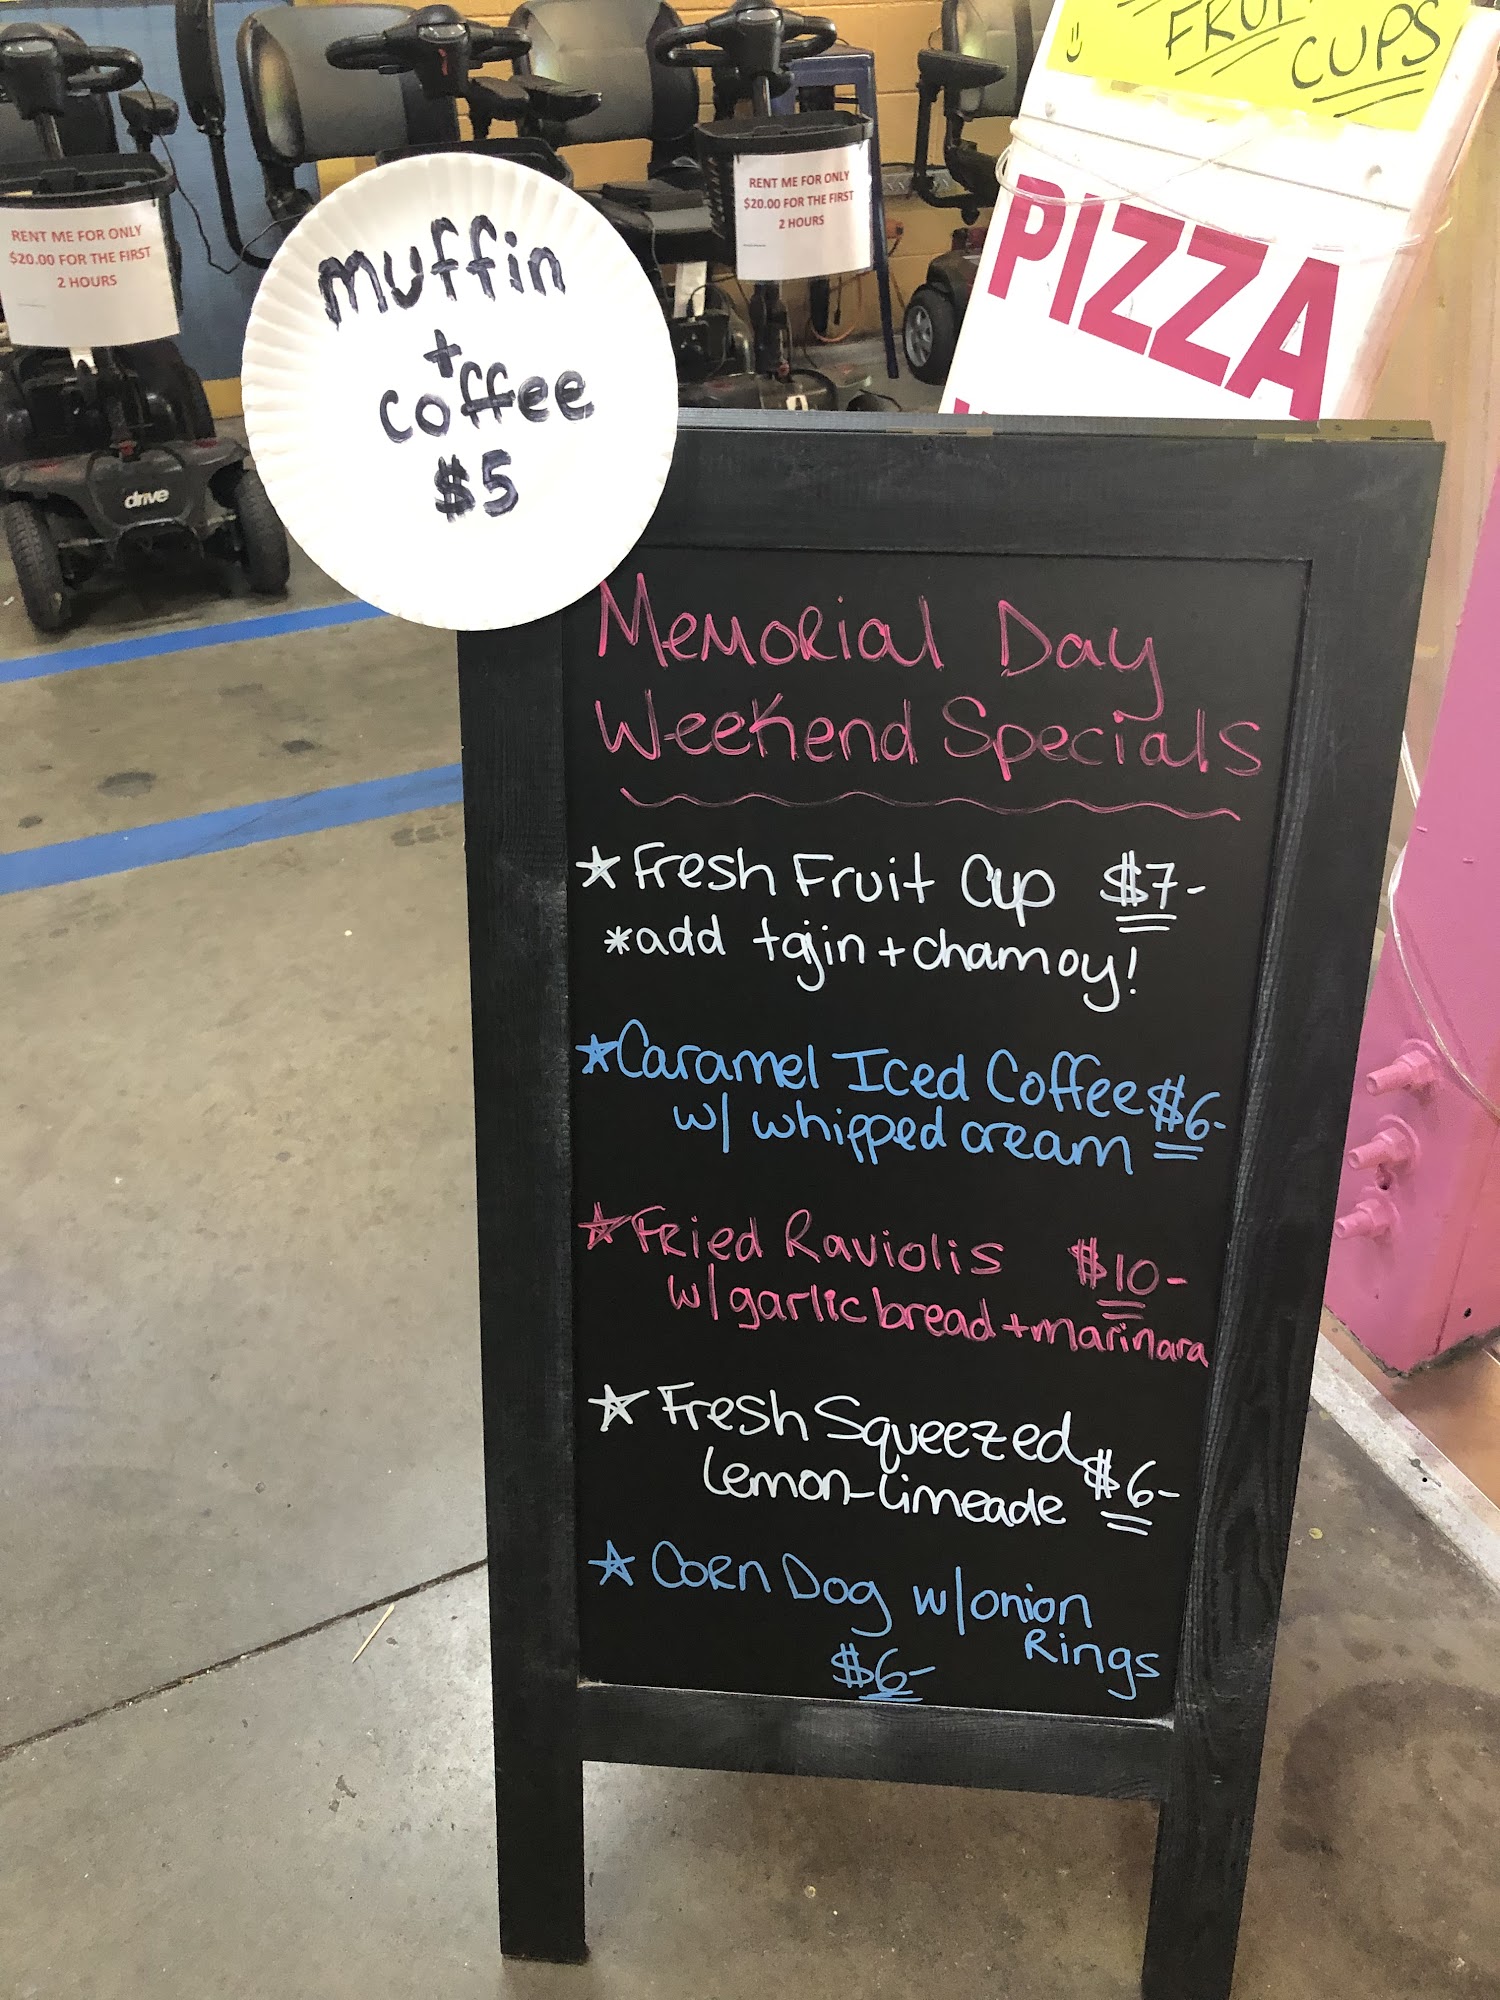 FRUIT
CUPS
RENT ME FOR ONLY
$20.00 FOR THE FIRST
2 HOURS
RENT ME FOR ONLY
$20.00 FOR THE FIRST
2 HOURS
PIZZA
drive
muffin
+
coffee
$5
Memorial Day
Weekend Specials
★ Fresh Fruit Cup $7-
*add tajin + chamoy!
★ Caramel Iced Coffee $6-
w/ whipped cream
★ Fried Raviolis $10-
w/ garlic bread + marinara
★ Fresh Squeezed
Lemon-Limeade $6-
★ Corn Dog w/ onion
Rings
$6-